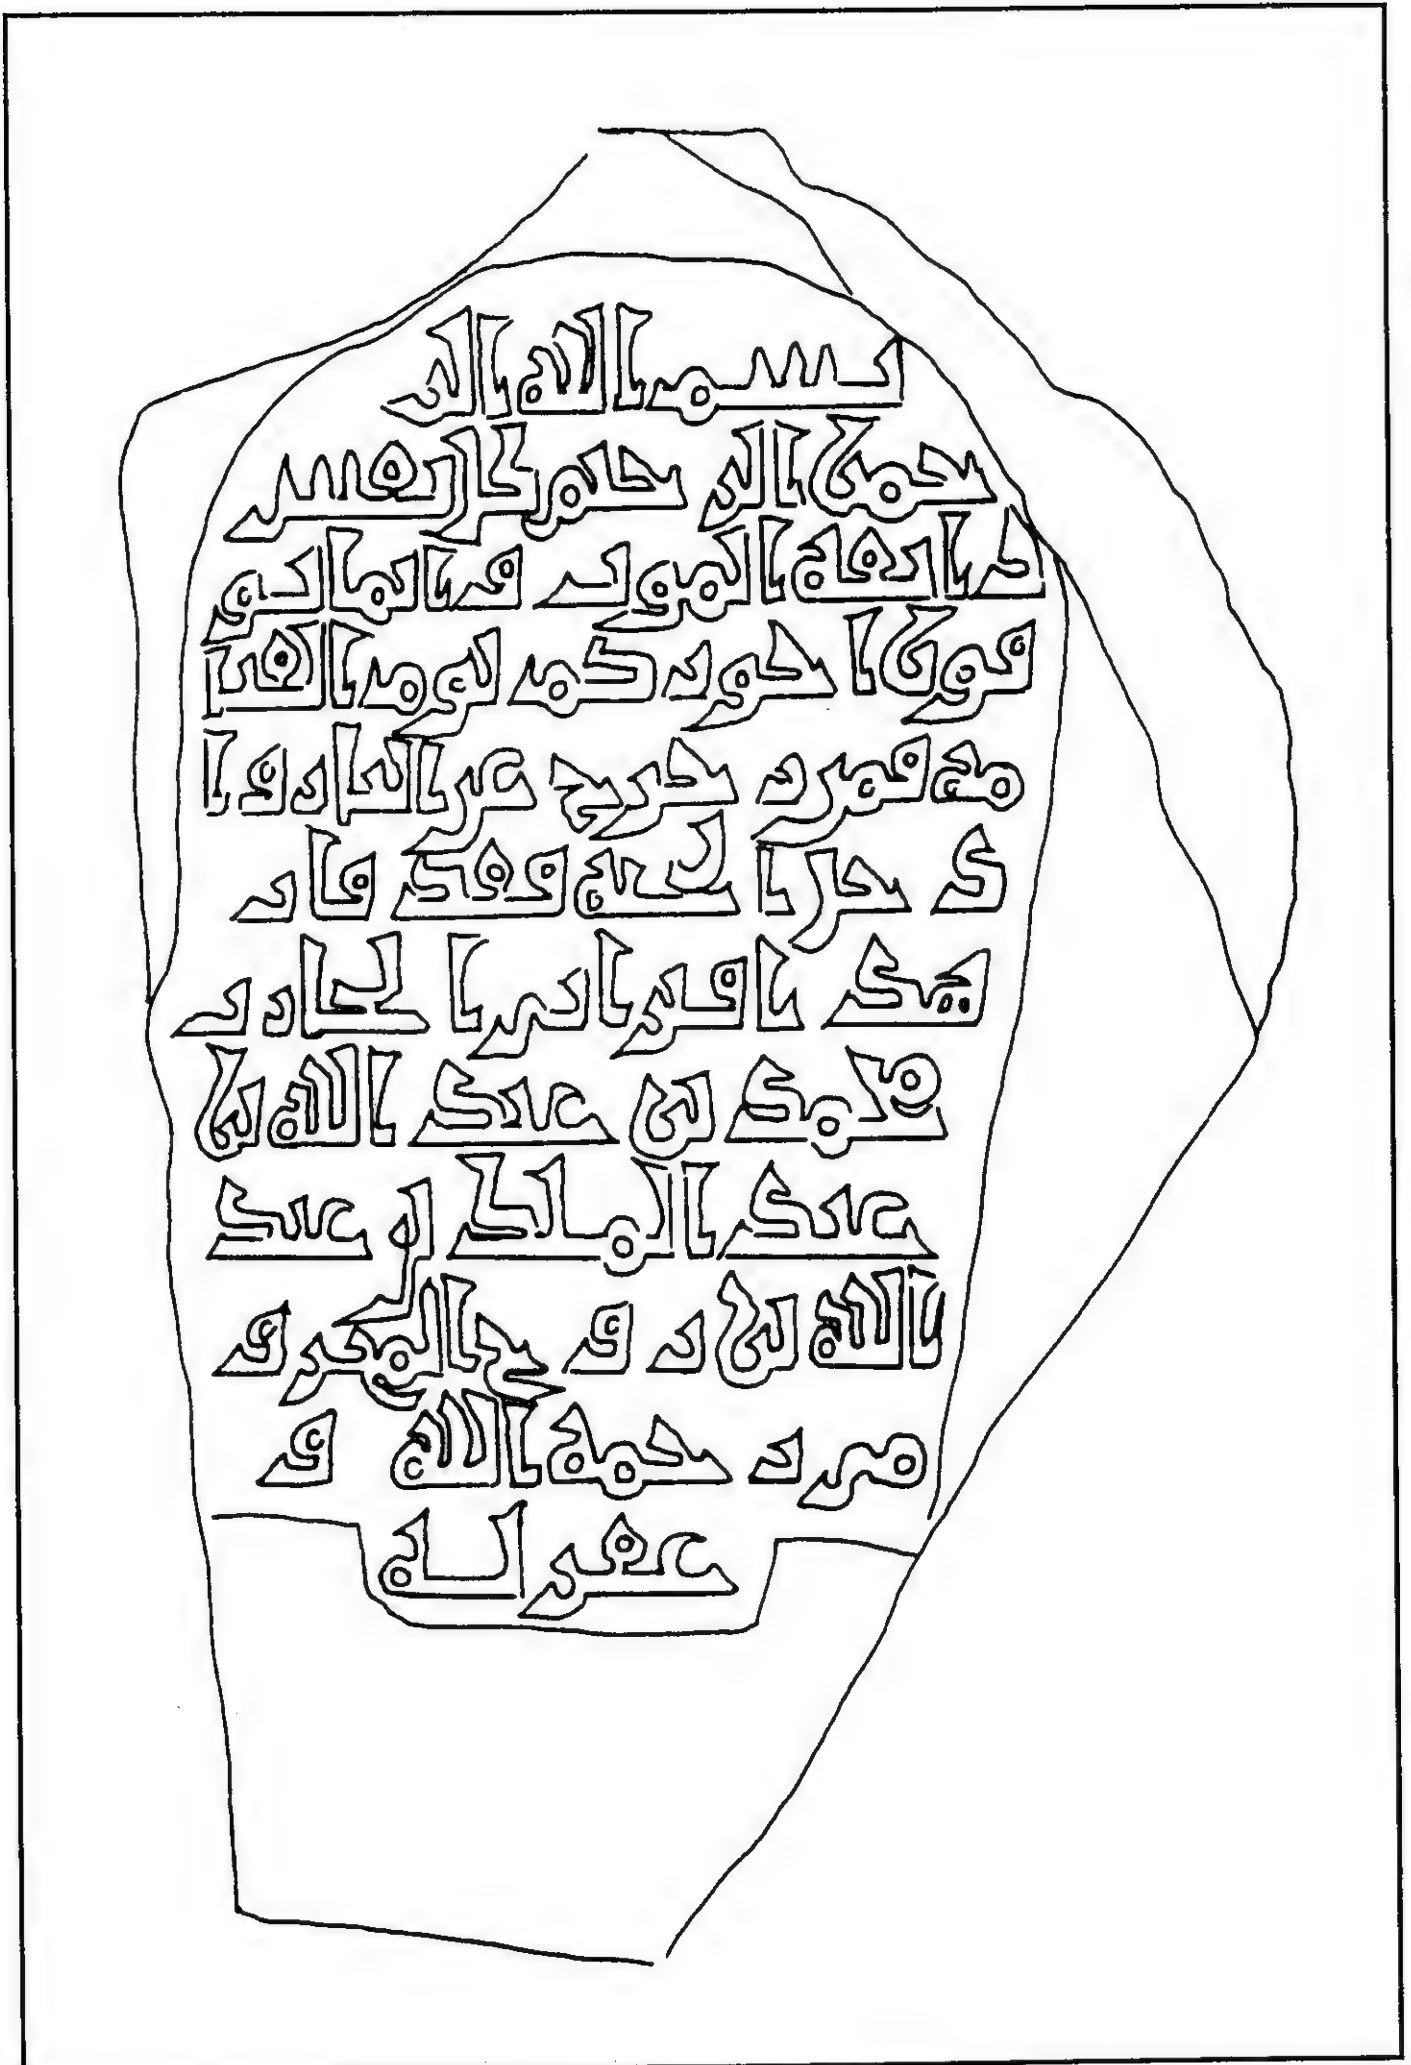 بسم الله الر
حمن الرحيم كل نفس
ذائقة الموت وإنما تو
فون أجوركم يوم القيا
مة فمن زحزح عن النار وأ
دخل الجنة فقد فاز
محمد بن عبد الله بن
عبد الملك و عبد
الله بن
من رحمة الله و
غفر له